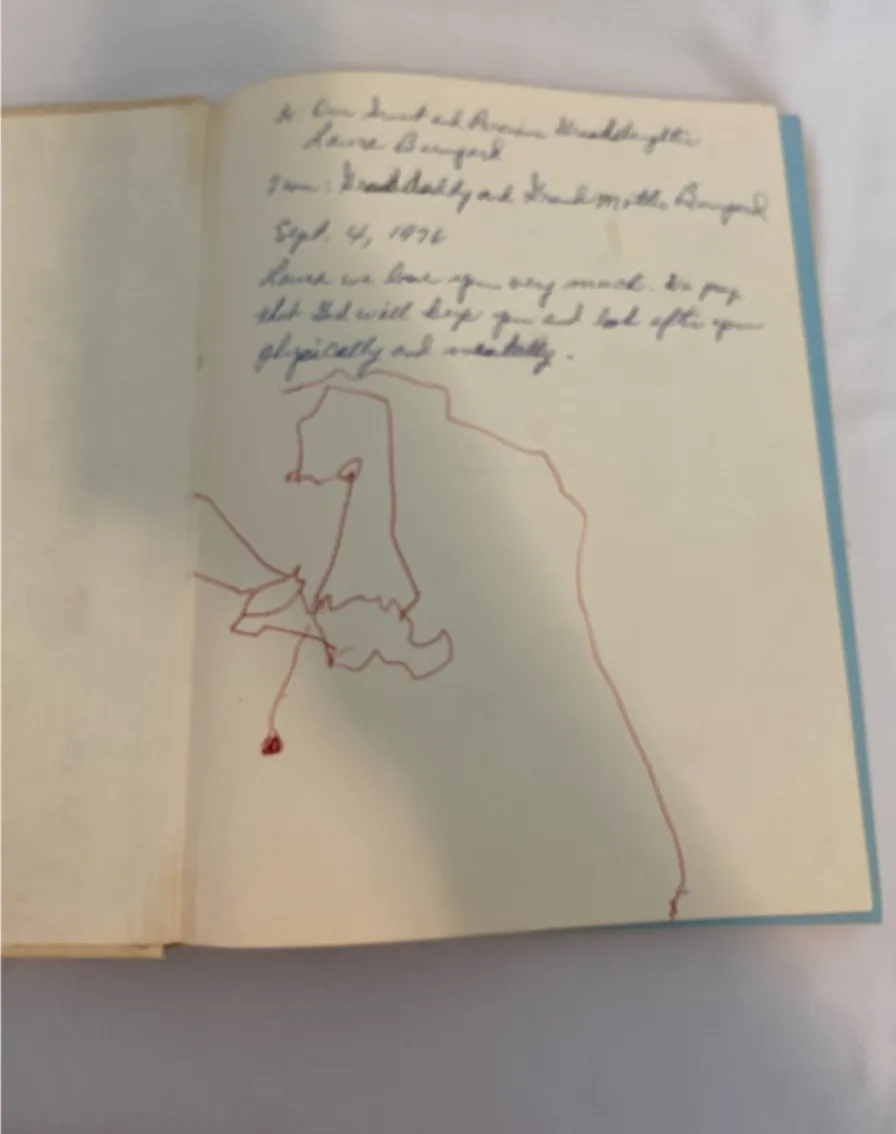 to: Our Sweet and Precious Granddaughter
Laura
From: Granddaddy and Grand Mother
Sept. 4, 1976
Laura we love you very much. We pray
that God will keep you and look after you
physically and mentally.